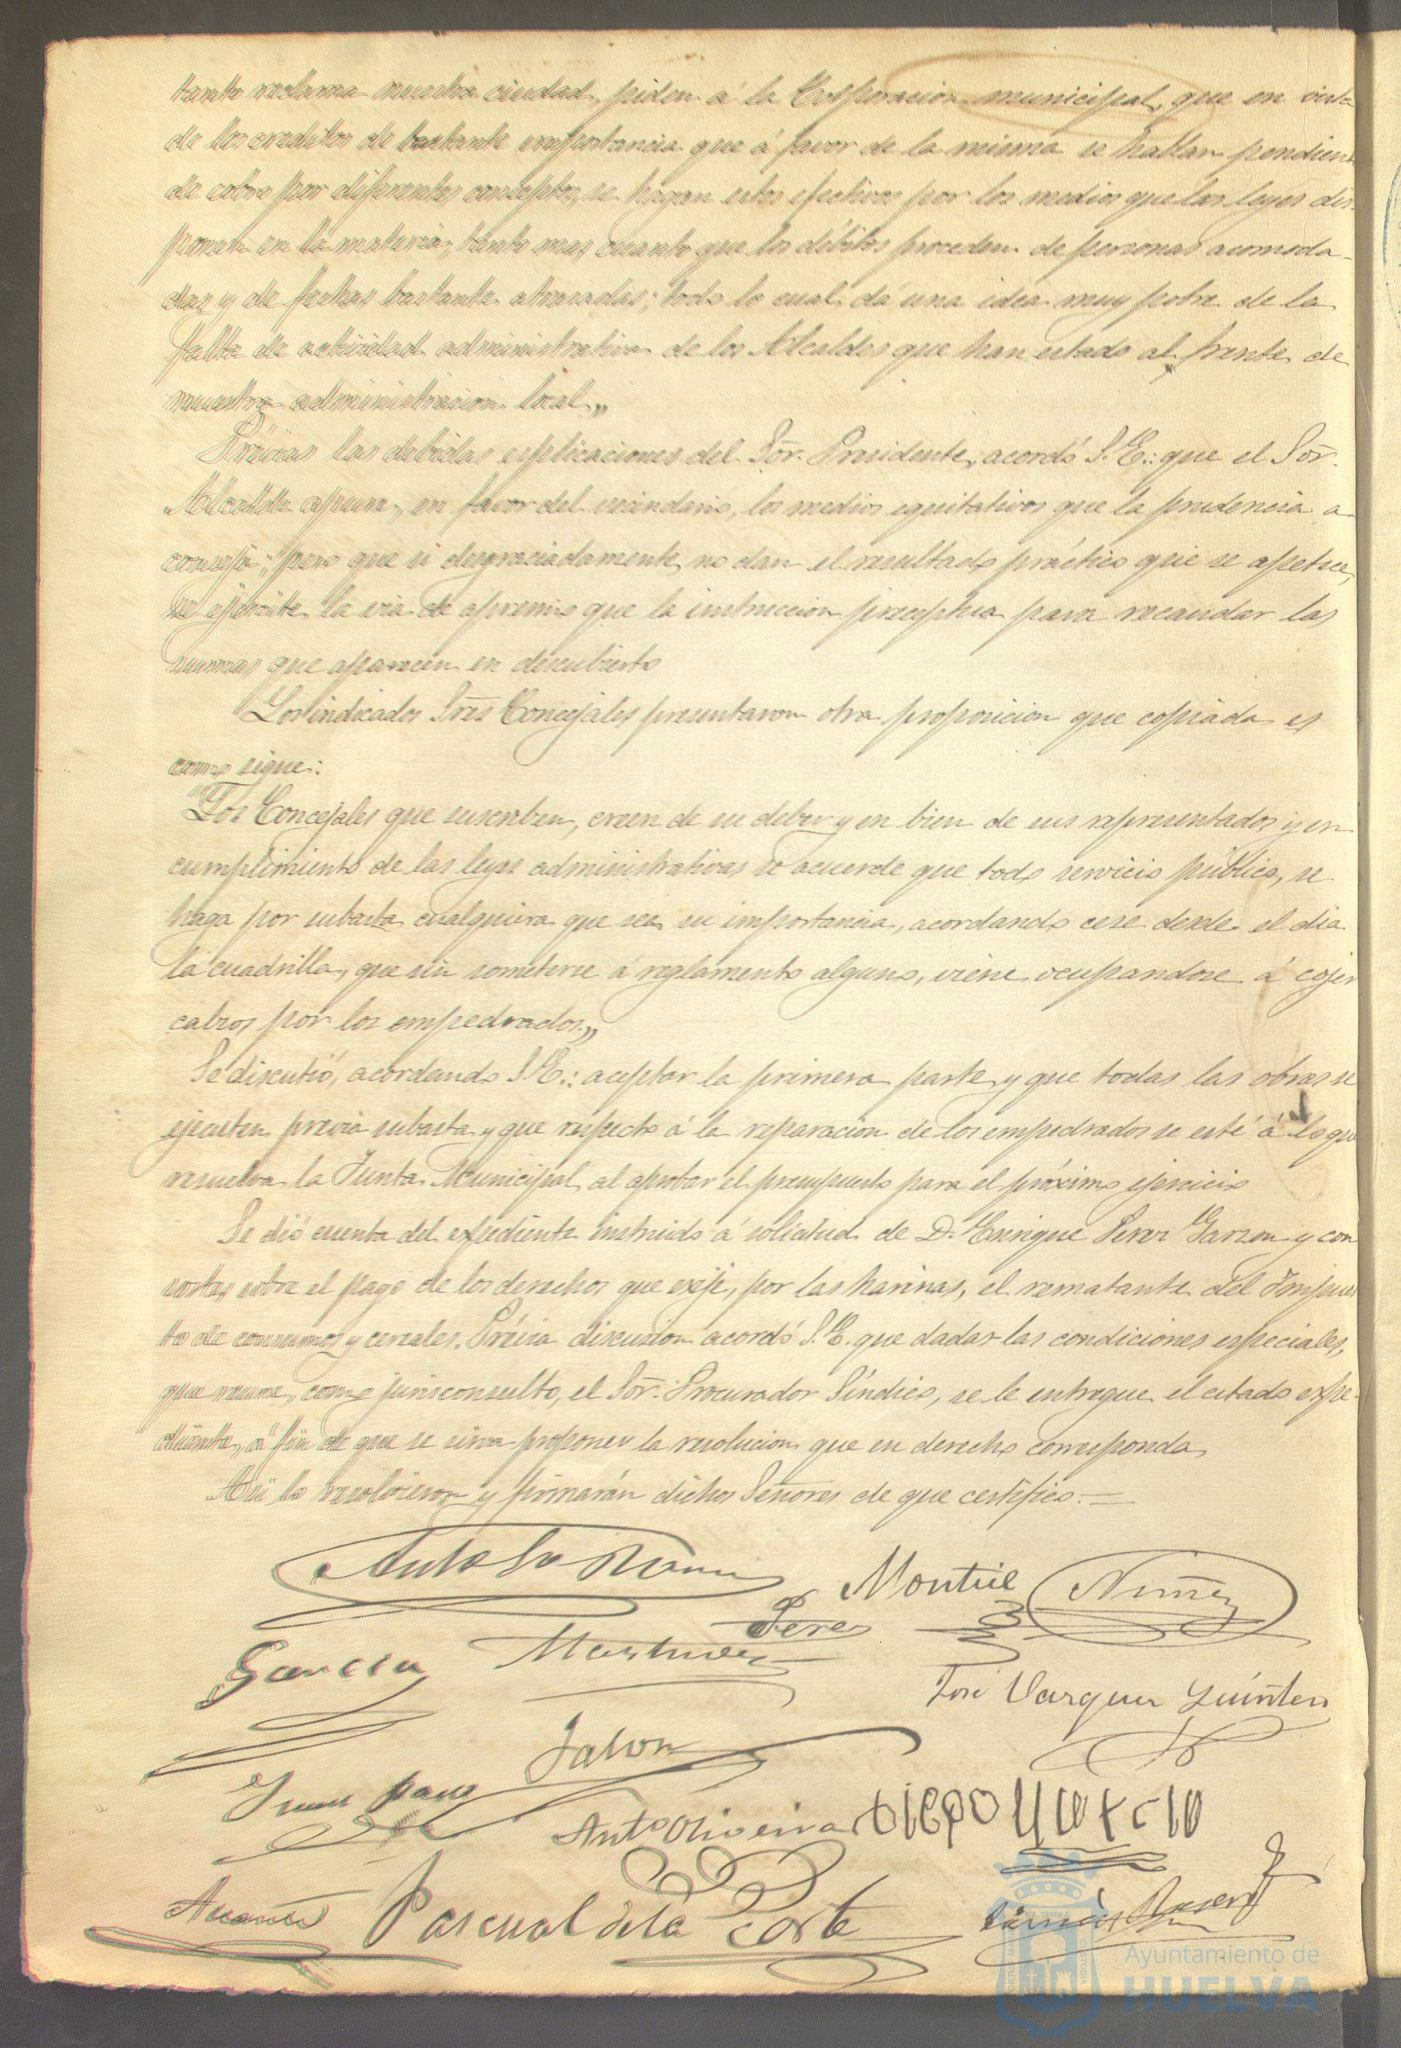 tanto reclama nuestra ciudad, piden á la Corporacion municipal, que en vista
de los creditos de bastante importancia que á favor de la misma se hallan pendien
de cobro por diferentes conceptos, se hagan estos efectivos por los medios que las leyes dis-
ponen en la materia, tanto mas, cuanto que los débitos proceden de personas acomoda-
das y de fechas bastante atrasadas; todo lo cual dá una idea muy pobre de la
falta de actividad administrativa de los Alcaldes que han estado al frente de
nuestra administracion local„
Prévias las debidas esplicaciones del Sõr. Presidente, acordó S.E.: que el Sõr.
Alcalde apure, en favor del vecindario, los medios equitativos que la prudencia a-
conseja; pero que si desgraciadamente, no dan el resultado práctico que se apetece,
se ejecute la via de apremio que la instruccion preceptua para recaudar las
sumas que aparecen en descubierto
Los indicados Sres Concejales presentaron otra proposicion que copiada es
como sigue:
"Los Concejales que suscriben, creen de su deber y en bien de sus representados y en
cumplimiento de las leyes administrativas se acuerde que todo servicio público, se
haga por subasta cualquiera que sea su importancia, acordando cese desde el dia
la cuadrilla, que sin someterse á reglamento alguno, viene ocupandose á cojer
calzos por los empedrados„
Se discutió, acordando S.E.: aceptar la primera parte y que todas las obras se
ejecuten prévia subasta y que respecto á la reparacion de los empedrados se esté á lo que
resuelva la Junta Municipal al aprobar el presupuesto para el próximo ejercicio
Se dió cuenta del expediente instruido á solicitud de D. Enrique Perez Garzon y con
sortes, sobre el pago de los derechos que exije, por las harinas, el rematante del Impues
to de consumos y cereales. Prévia discusion acordó S.E. que dadas las condiciones especiales,
que reune, como jurisconsulto, el Sõr. Procurador Síndico, se le entregue el citado espe-
diente, á fin de que se sirva proponer la resolucion que en derecho corresponda,
Asi lo resolvieron y firmarán dichos Señores de que certifico.=
Montiel Nuñez
Perez
Garcia Martinez
José Vazquez
Jalon
Antº Oliveira
Pascual de la Corte
Ayuntamiento de
HUELVA